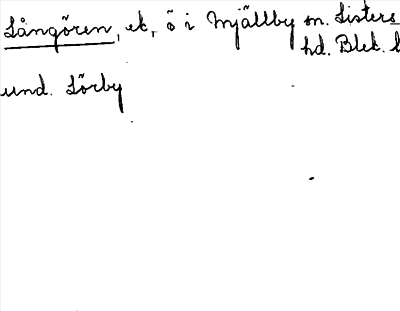 Långören, ek, ö i Mjällby sn. Listers
hd. Blek. l
und. Lörby